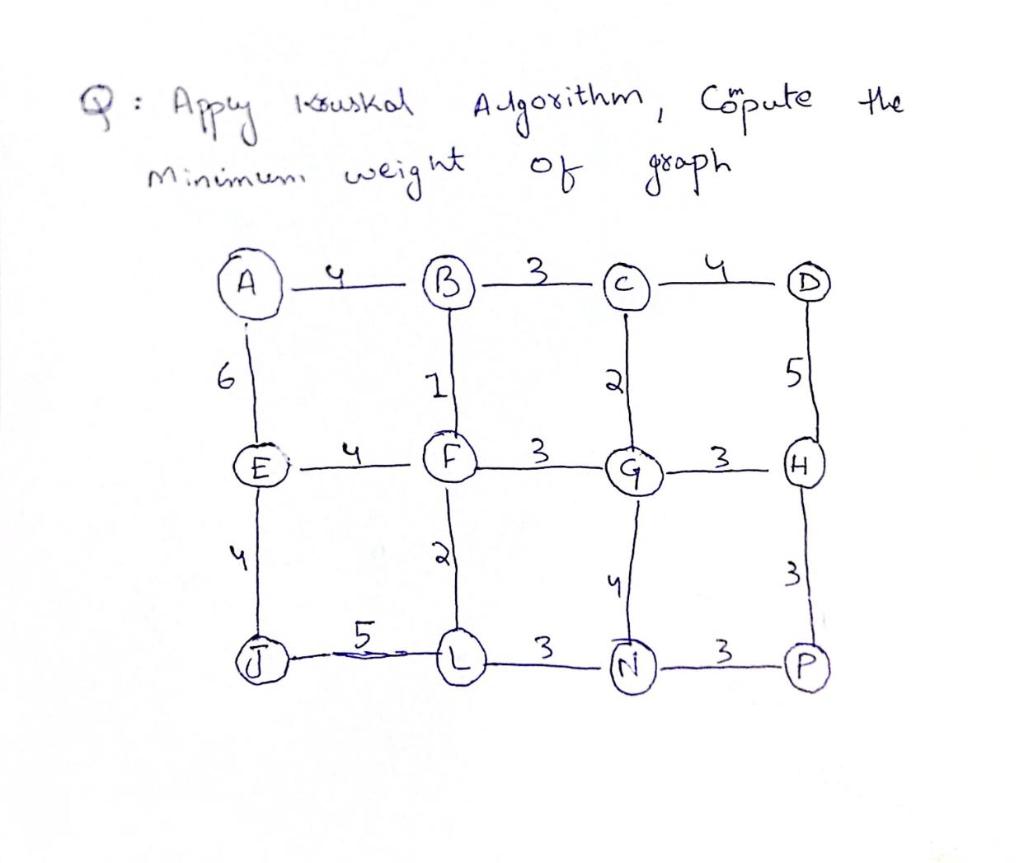 Q: Apply Kruskal Algorithm, Compute the
Minimum weight of graph
A 4 B 3 C 4 D
6 1 2 5
E 4 F 3 G 3 H
4 2 4 3
J 5 L 3 N 3 P